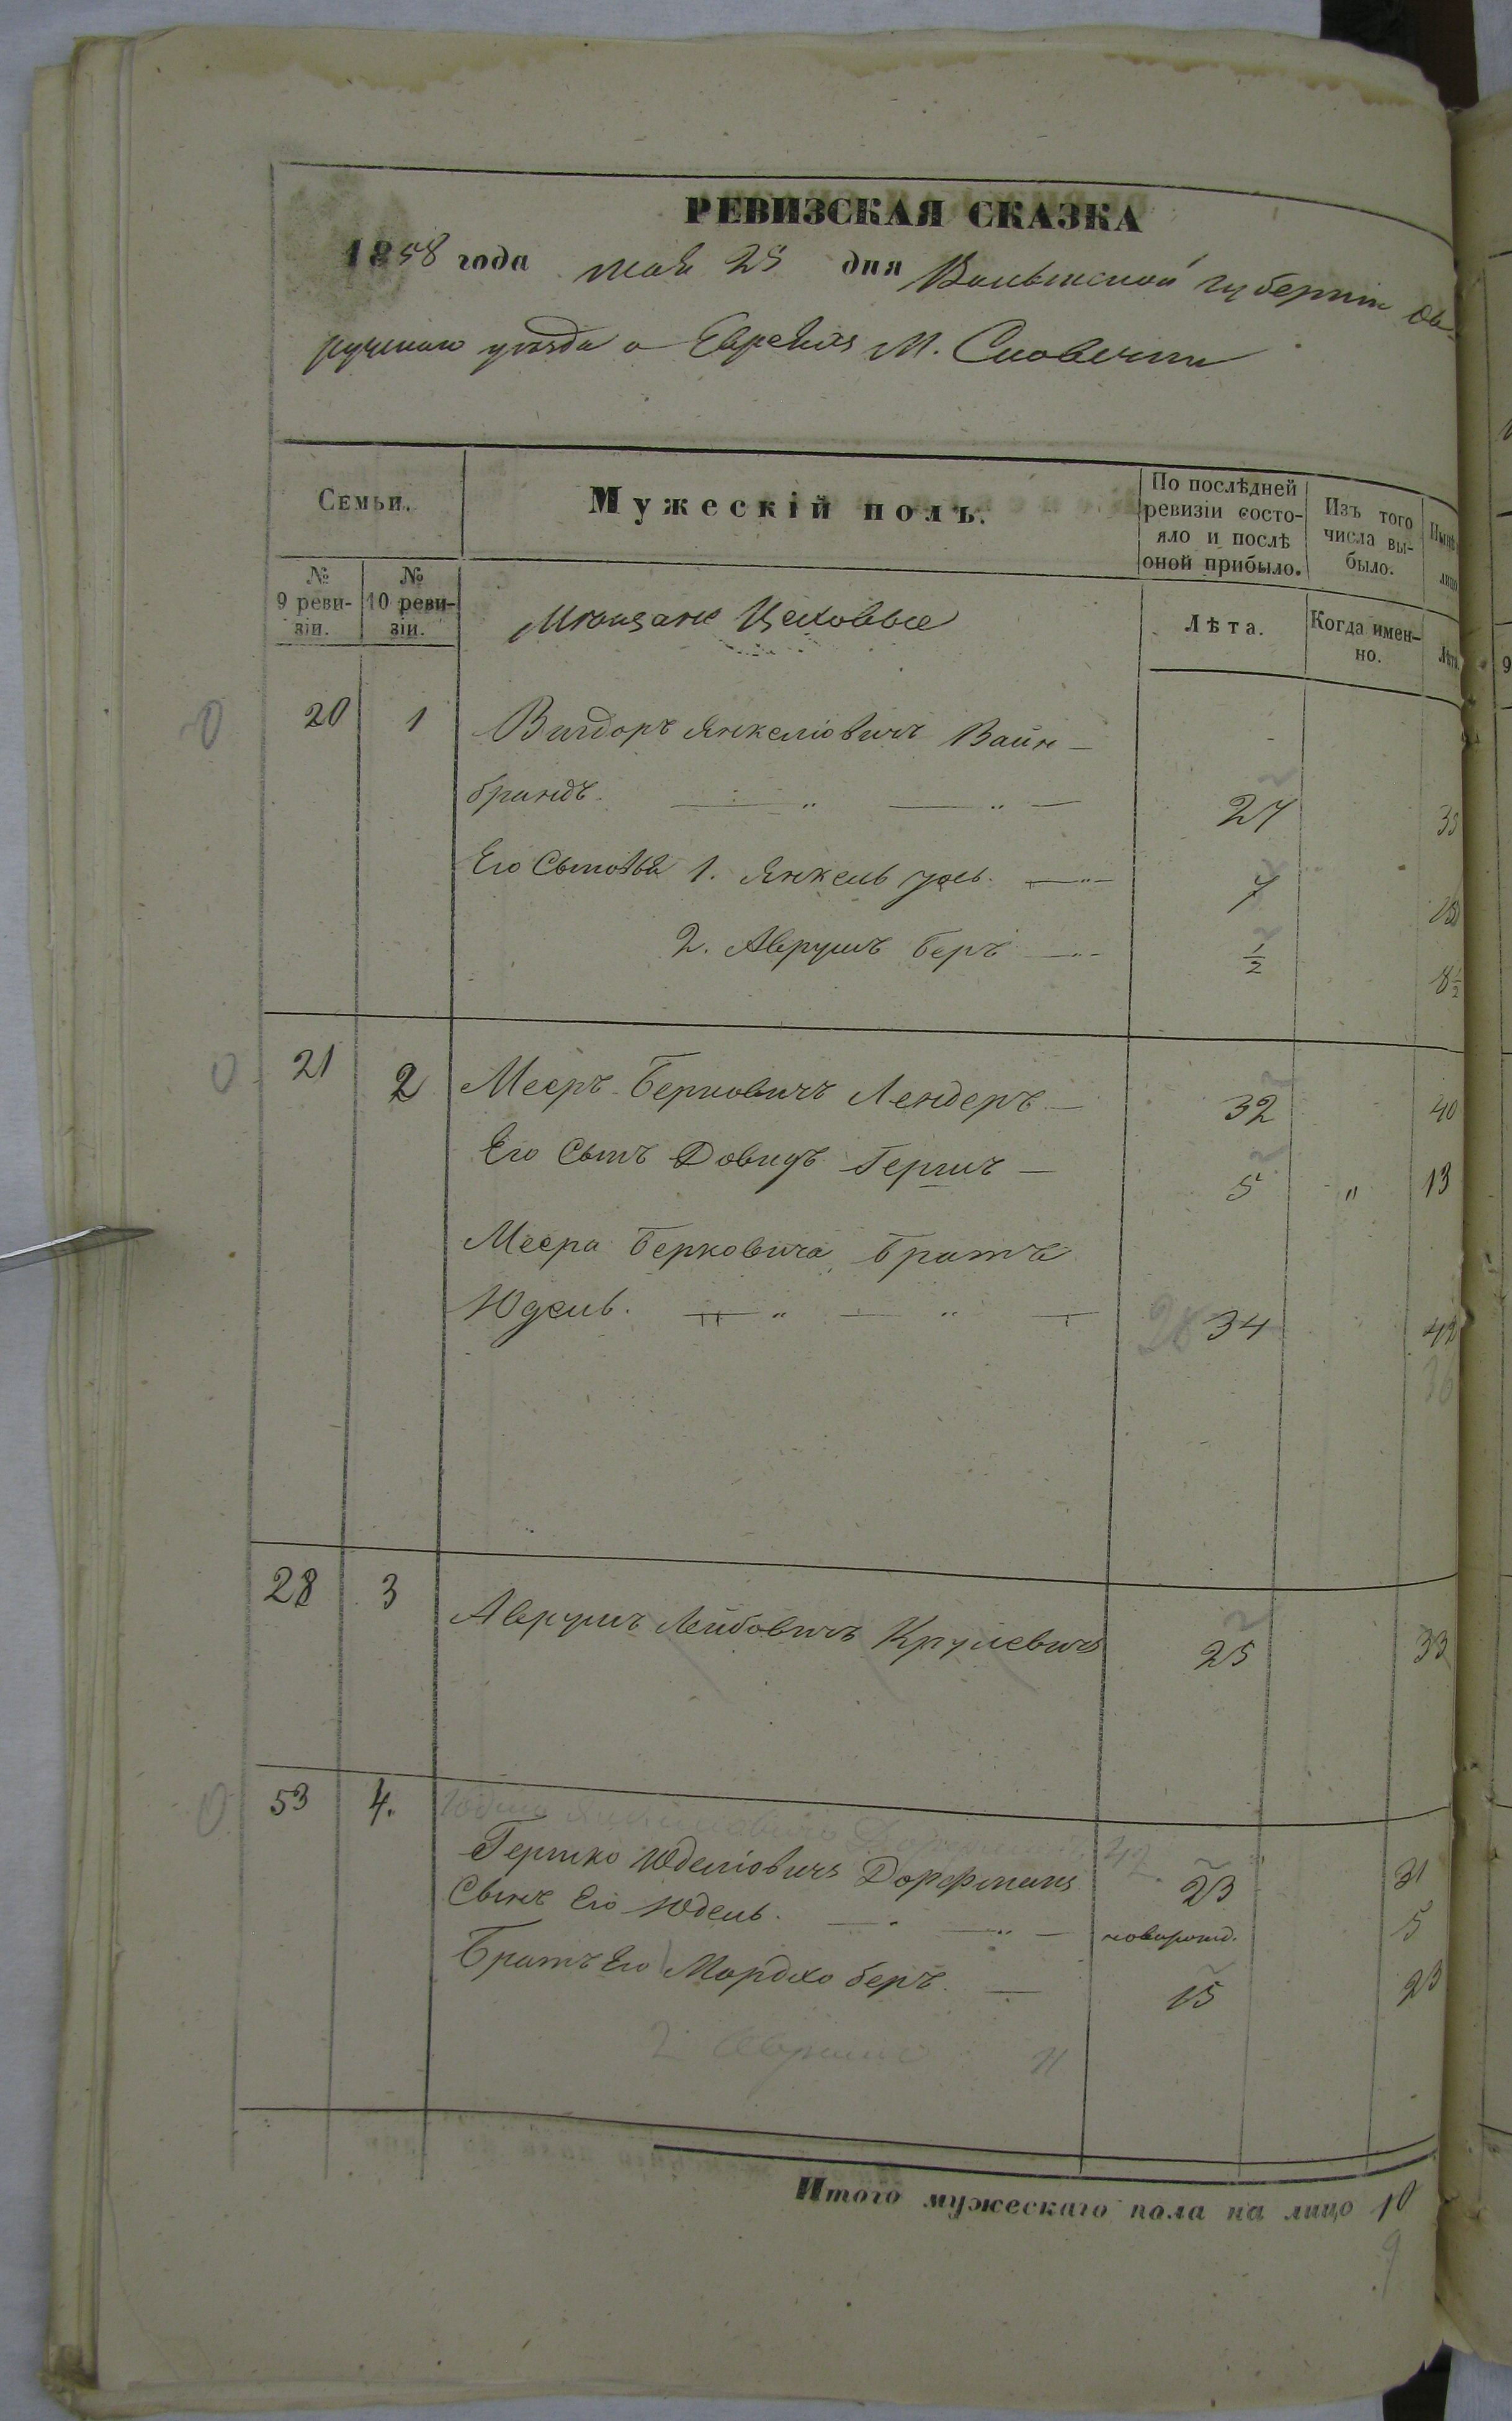 РЕВИЗСКАЯ СКАЗКА
1858 года мая 25 дня Волынской губернии Ов-
ручскаго уезда о Евреяхъ М. Словечни
Семьи.
Мужескій полъ.
По послѣдней ревизіи состо-
яло и послѣ оной прибыло.
Изъ того числа вы-
было.
№ 9 реви-
зіи.
№ 10 реви-
зіи.
Мѣщане Цеховые
Лѣта.
Когда имен-
но.
Лѣта.
20 1 Вигдоръ Янкеліовичъ Вайн-
брандъ. 27 35
Его Сыновья 1. Янкель 7 15
2. Аврумъ Беръ ½ 8½
21 2 Мееръ Берковичъ Лендеръ 32 40
Его Сынъ Довидъ Гершъ 5 " 13
Меера Берковича Братъ
Юдель. 28 34 42
36
28 3 Аврумъ Лейбовичъ Крулевичъ 25 33
53 4. 42
Гершко Юделіовичъ Дорфманъ 23 31
Сынъ Его Юдель. новорожд. 5
Братъ Его Мордко Беръ. 15 23
2 11
Итого мужескаго пола на лицо 10
9